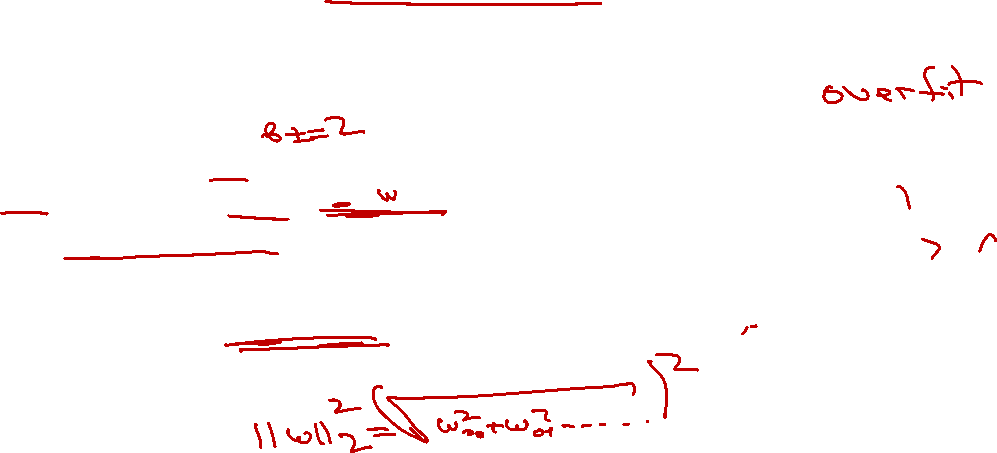 overfit
w
||w||₂² = (√(w₀₀² + w₀₁² ------))²